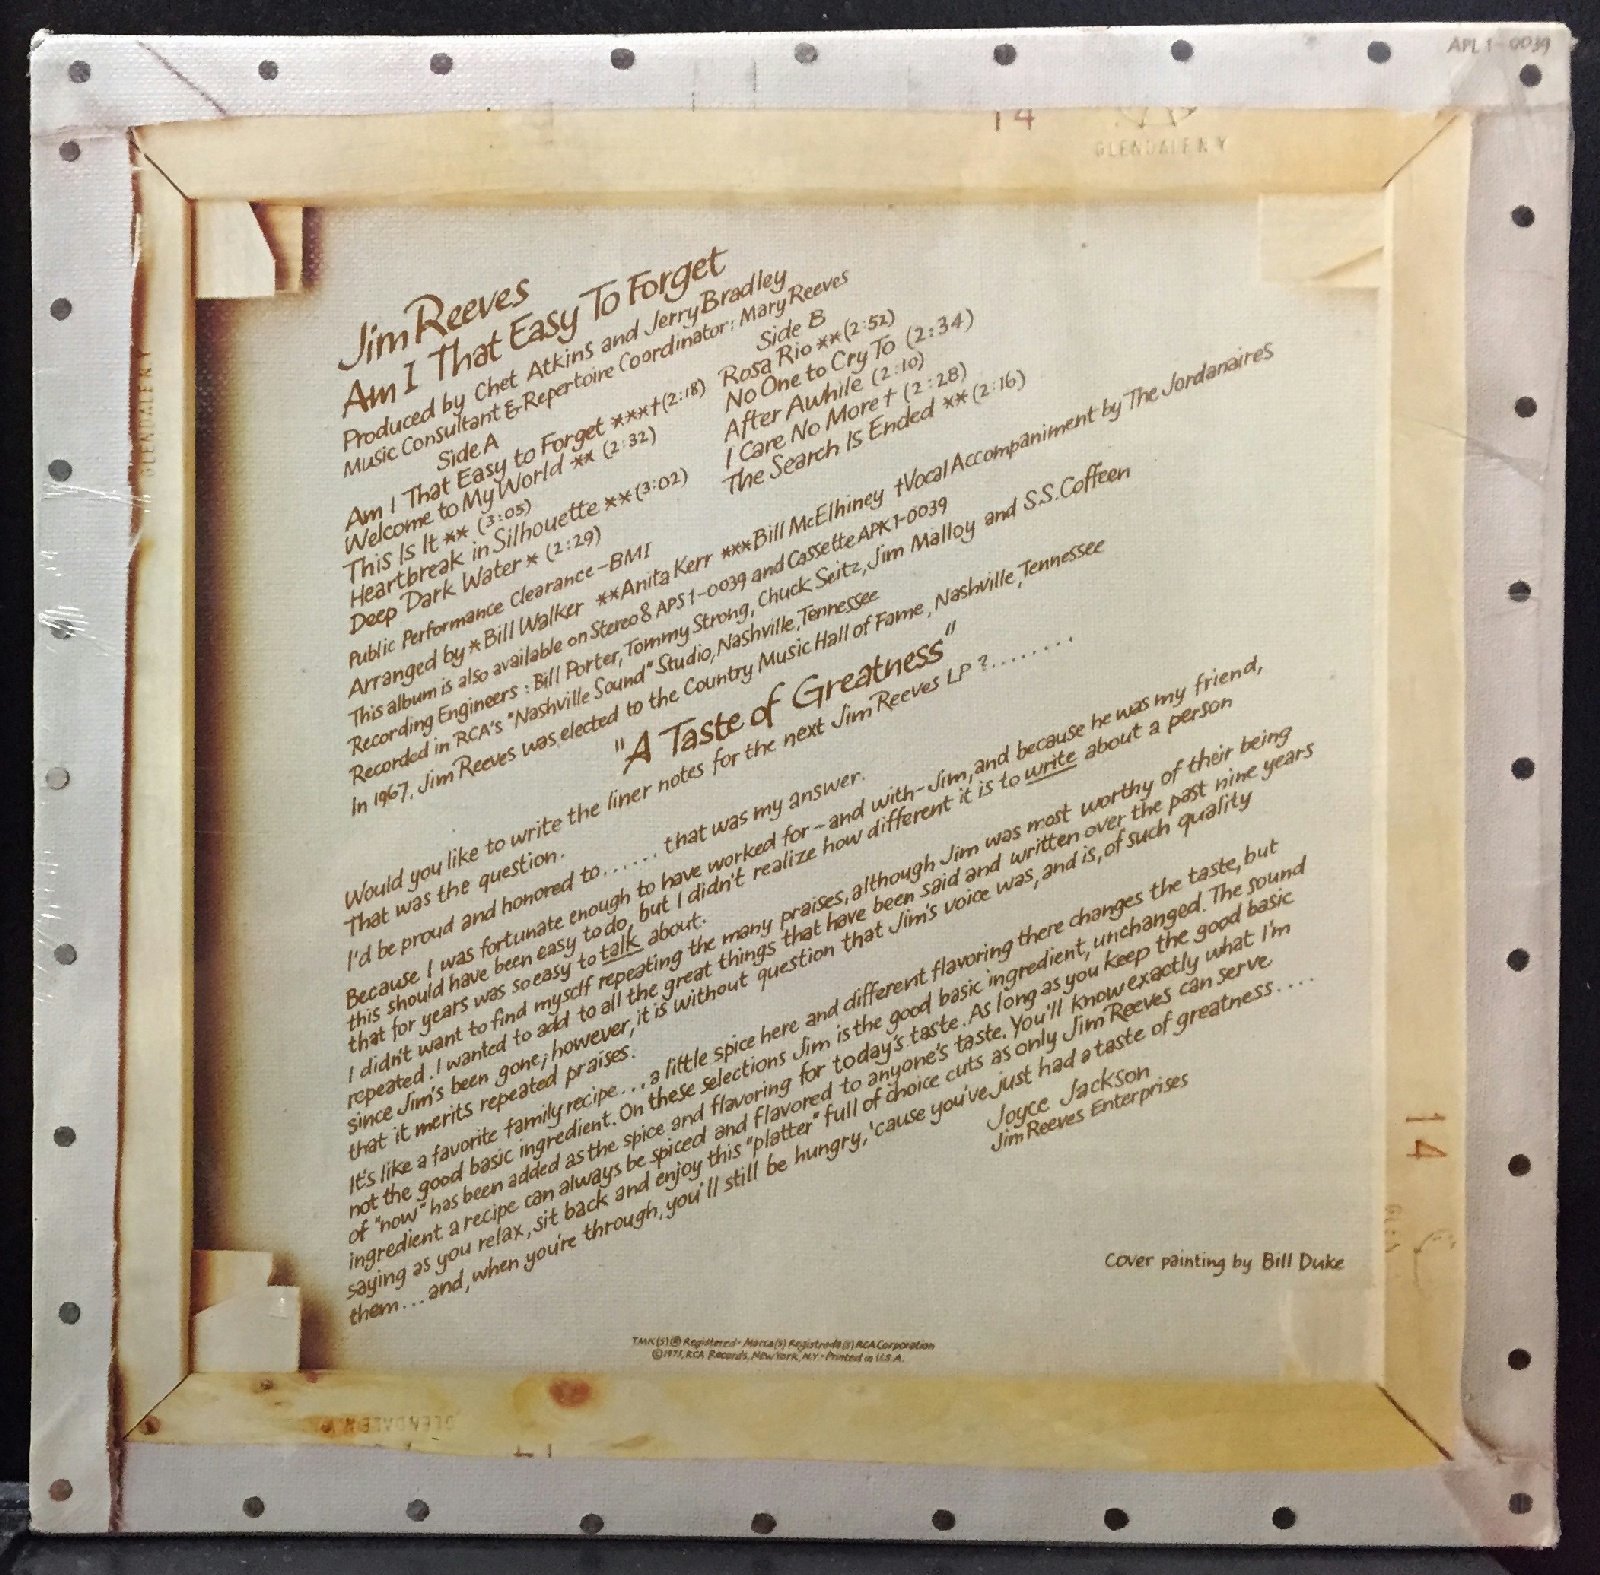 APL 1-0039
14
GLENDALE N Y
GLENDALE N Y
Jim Reeves
Am I That Easy To Forget
Produced by Chet Atkins and Jerry Bradley
Music Consultant & Repertoire Coordinator: Mary Reeves
Side A
Am I That Easy to Forget ***†(2:18)
Welcome to My World ** (2:32)
This Is It ** (3:05)
Heartbreak in Silhouette **(3:02)
Deep Dark Water * (2:29)
Side B
Rosa Rio **(2:52)
No One to Cry To (2:34)
After Awhile (2:10)
I Care No More † (2:28)
The Search Is Ended ** (2:16)
Public Performance Clearance-BMI
Arranged by *Bill Walker **Anita Kerr ***Bill McElhiney †Vocal Accompaniment by The Jordanaires
This album is also available on Stereo 8 APS1-0039 and Cassette APK1-0039
Recording Engineers: Bill Porter, Tommy Strong, Chuck Seitz, Jim Malloy and S.S. Coffeen
Recorded in RCA's "Nashville Sound" Studio, Nashville, Tennessee
In 1967, Jim Reeves was elected to the Country Music Hall of Fame, Nashville, Tennessee
"A Taste of Greatness"
Would you like to write the liner notes for the next Jim Reeves LP ?........
That was the question.
I'd be proud and honored to...... that was my answer.
Because I was fortunate enough to have worked for-and with-Jim, and because he was my friend,
this should have been easy to do, but I didn't realize how different it is to write about a person
that for years was so easy to talk about.
I didn't want to find myself repeating the many praises, although Jim was most worthy of their being
repeated. I wanted to add to all the great things that have been said and written over the past nine years
since Jim's been gone; however, it is without question that Jim's voice was, and is, of such quality
that it merits repeated praises.
It's like a favorite family recipe... a little spice here and different flavoring there changes the taste, but
not the good basic ingredient. On these selections Jim is the good basic ingredient, unchanged. The sound
of "now" has been added as the spice and flavoring for today's taste. As long as you keep the good basic
ingredient a recipe can always be spiced and flavored to anyone's taste. You'll know exactly what I'm
saying as you relax, sit back and enjoy this "platter" full of choice cuts as only Jim Reeves can serve
them... and, when you're through, you'll still be hungry, 'cause you've just had a taste of greatness....
Joyce Jackson
Jim Reeves Enterprises
14
Cover painting by Bill Duke
TMK(S) ® Registered • Marca(s) Registrada(s) RCA Corporation
RCA Records, New York, N.Y. • Printed in U.S.A.